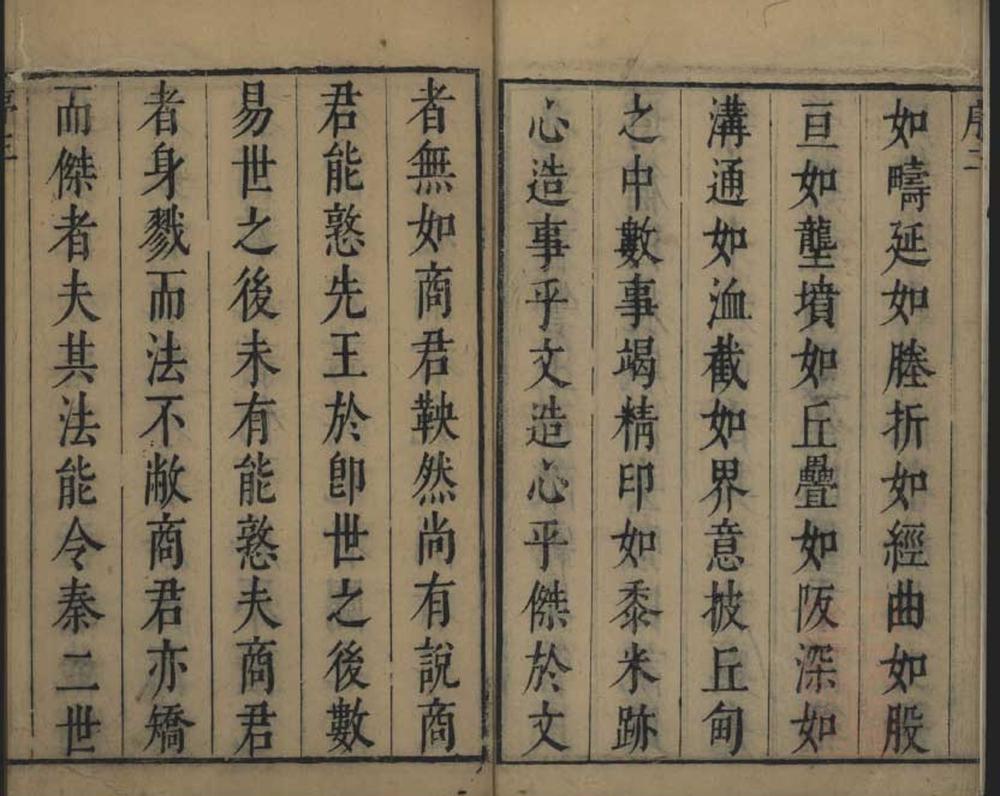 如疇延如塍折如經曲如股
亘如壟墳如丘疊如阪深如
溝通如洫截如界意披丘甸
之中數事竭精印如黍米跡
心造事乎文造心乎傑於文
者無如商君鞅然尚有說商
君能憝先王於卽世之後數
易世之後未有能憝夫商君
者身戮而法不敝商君亦矯
而傑者夫其法能令秦二世